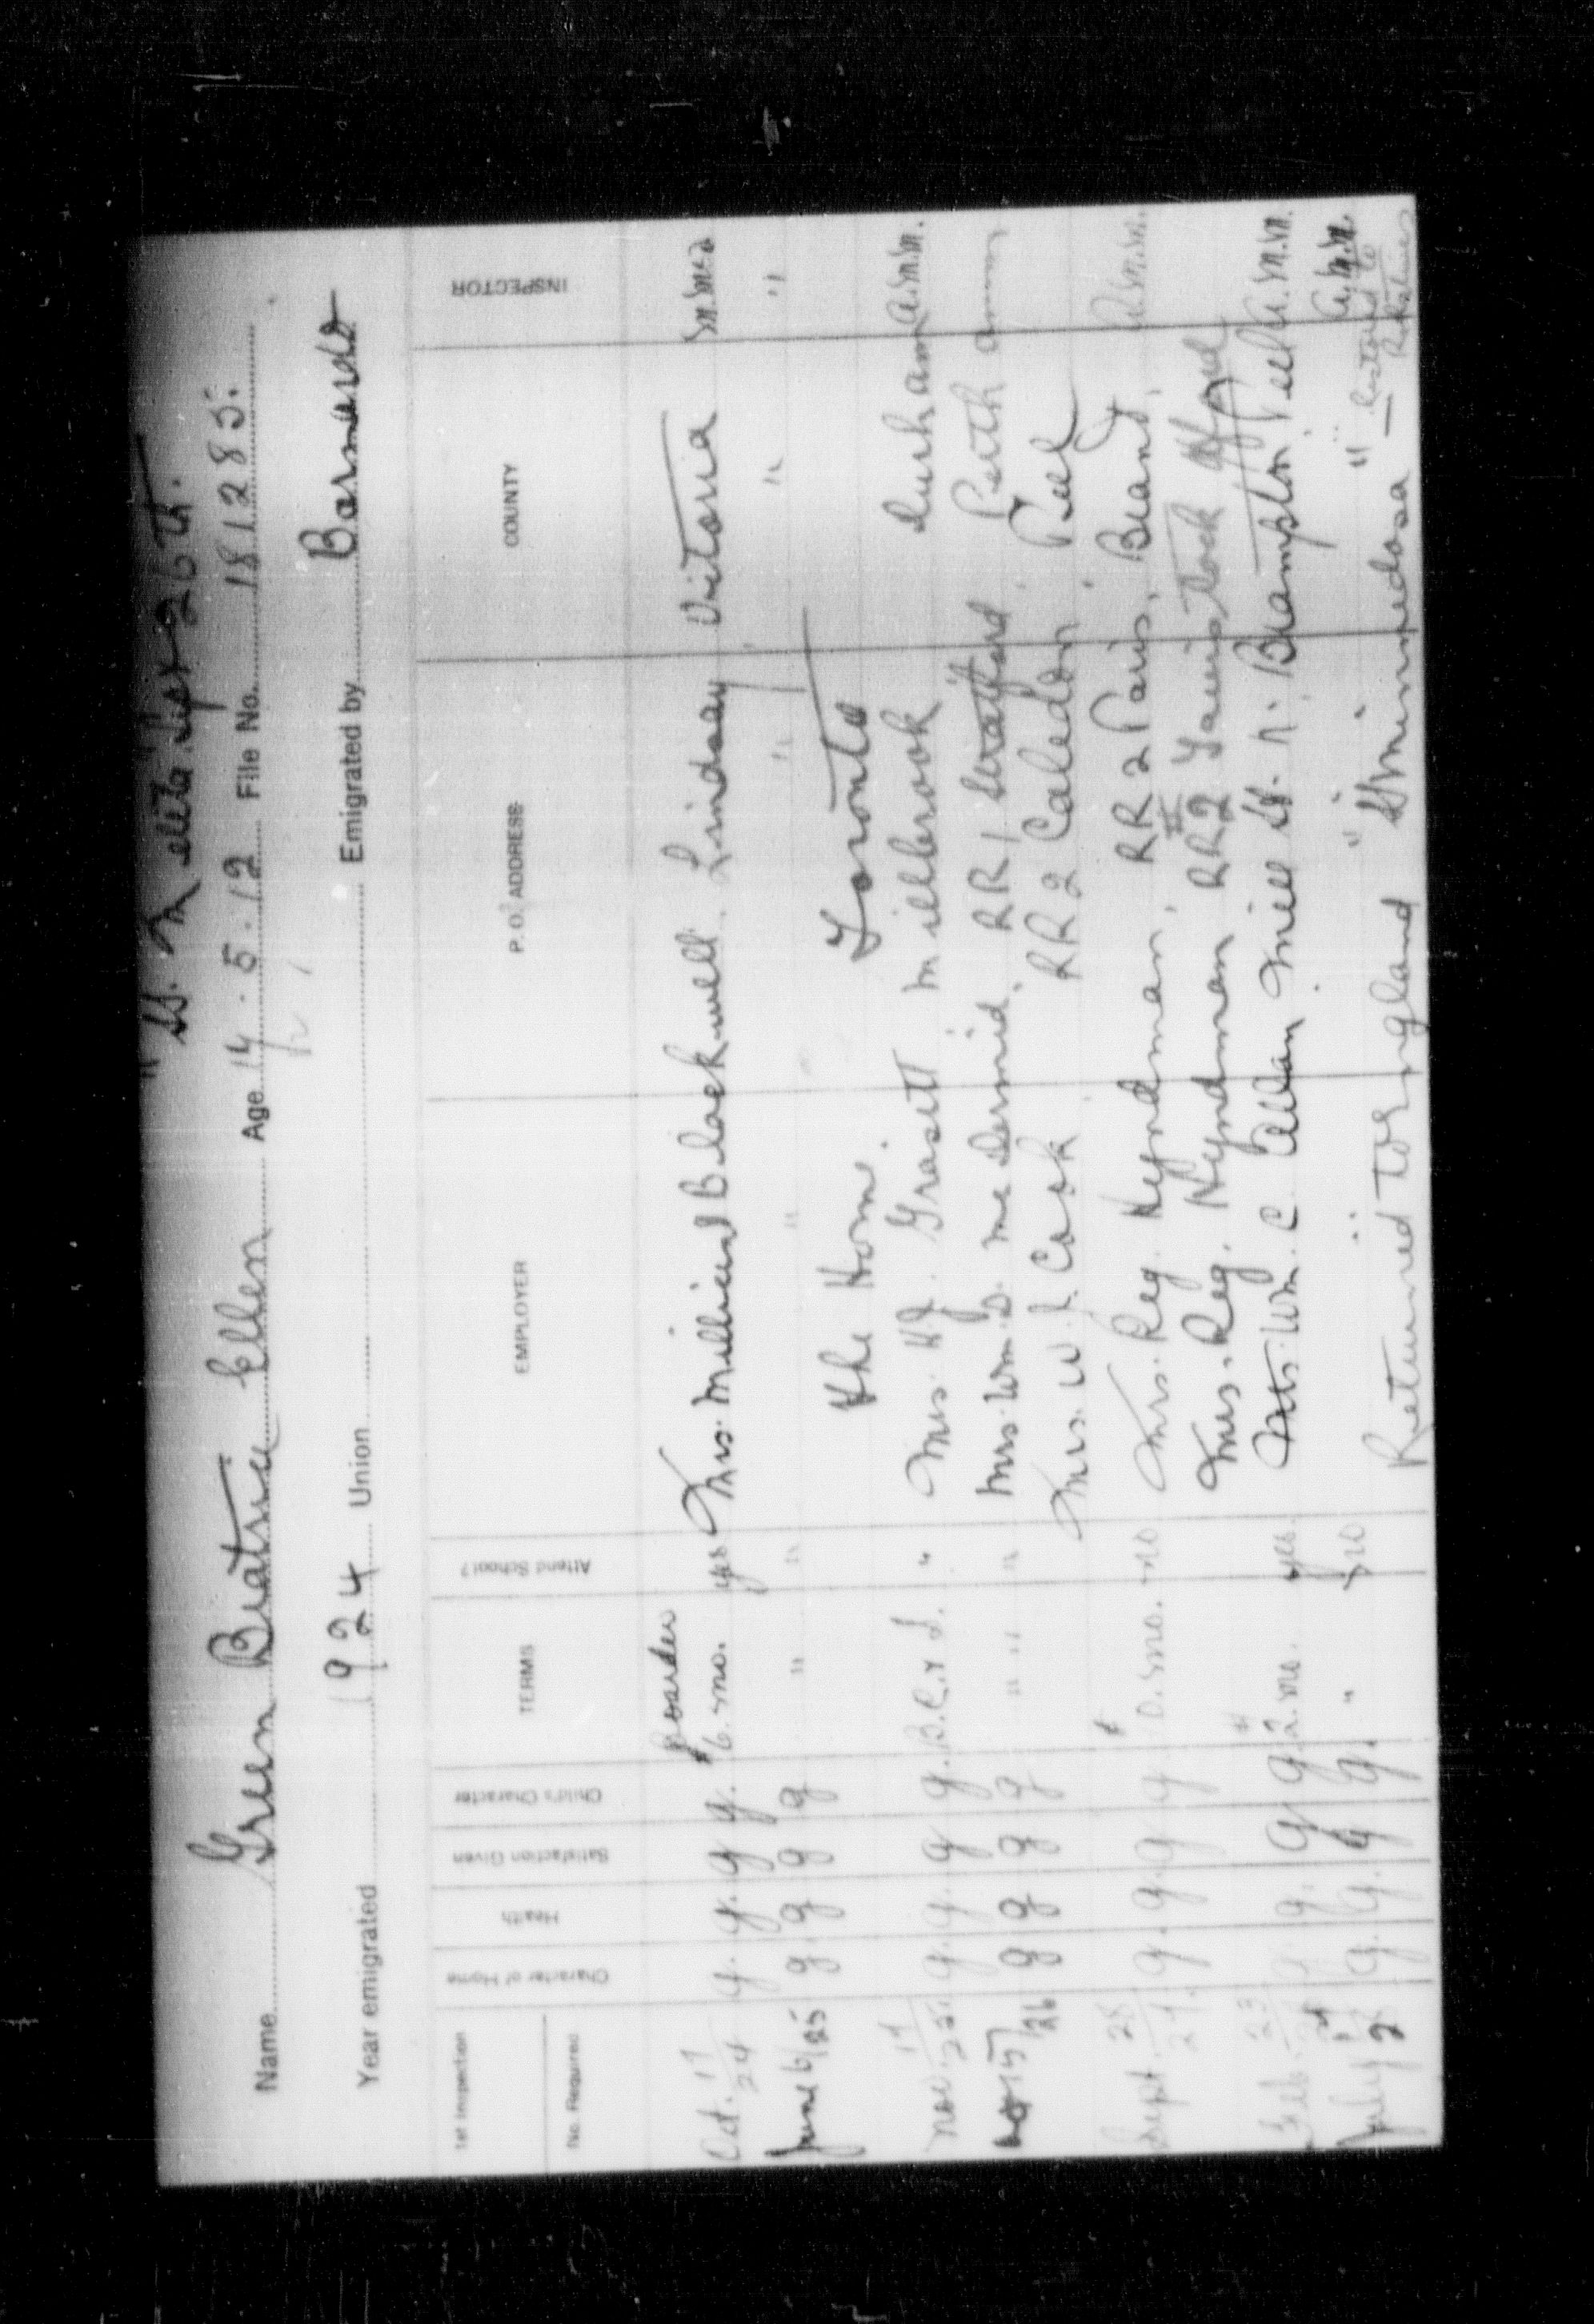 " SS. Melita Sept 26th.
Name Green Beatrice Ellen Age 14. 5. 12 File No. 181283.
Year emigrated 1924 Union Emigrated by Barnardo
1st Inspection
No. Required
Character of Home
Health
Satisfaction Given
Child's Character
TERMS
Attend School?
EMPLOYER
P. O. ADDRESS
COUNTY
INSPECTOR
Boarder
Oct. 17/24 g. g. g g. $6. mo. yes Mrs. Millicent Blackwell. Lindsay Victoria
June 6/25 g. g g g " " " " " "
The Home Toronto
Nov. 17/25 g. g. g g. B.C. & S. " Mrs. H.J. Grasett Millbrook Durham A.M.M.
Nov 15/26 g g g g " " " Mrs. Wm. D. McDermid. RR 1 Stratford. Perth
Mrs. W. J. Cook RR 2 Caledon. Peel
Sept. 28/27. g. g. g g $ mo. no Mrs. Reg. Hyndman, RR 2 Paris, Brant, A.M.M.
Mrs. Reg. Hyndman RR 2 Tavistock
Feb. 23 g. g g. $ 2. mo. yes. Mrs. Wm. C Allan Mill St. N. Brampton Peel A.M.M.
July g. g. g g. " no " " " A.M.M.
Returned to England " Minnedosa " —